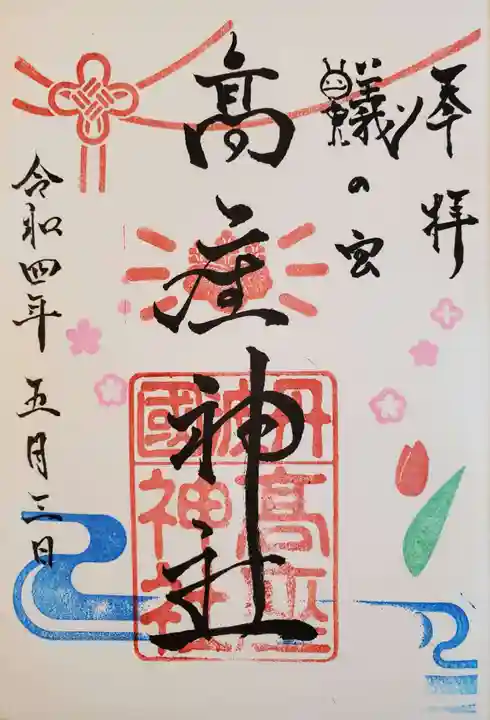 奉拝
蟻の宮
高座神社
丹波
國
高座
神社
令和四年 五月三日